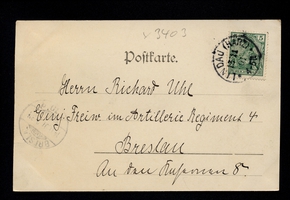 v 3403
Postkarte.
LANDAU (PFALZ)
Herrn Richard Uhl
Einj Freiw. im Artillerie Regiment 4
Breslau
An den Kasernen 8.